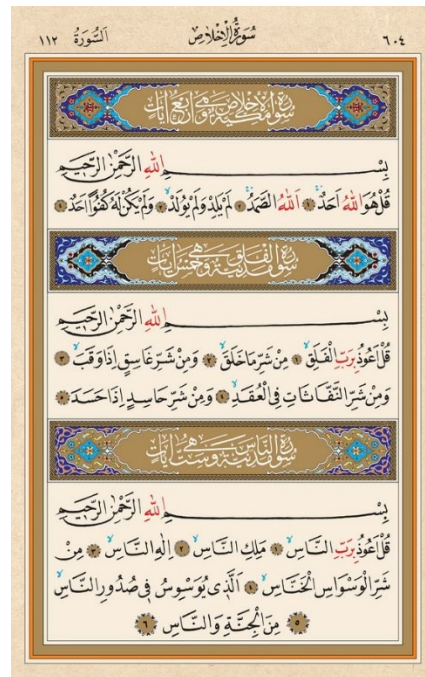 ٦٠٤ سُورَةُ الْاِخْلَاصِ اَلسُّورَةُ ١١٢
سُورَةُ الْاِخْلَاصِ مَكِّيَّةٌ وَهِيَ اَرْبَعُ اٰيَاتٍ
بِسْمِ اللّٰهِ الرَّحْمٰنِ الرَّح۪يمِ
قُلْ هُوَ اللّٰهُ اَحَدٌۚ ﴿١﴾ اَللّٰهُ الصَّمَدُۚ ﴿٢﴾ لَمْ يَلِدْ وَلَمْ يُولَدْۙ ﴿٣﴾ وَلَمْ يَكُنْ لَهُ كُفُوًا اَحَدٌ ﴿٤﴾
سُورَةُ الْفَلَقِ مَدَنِيَّةٌ وَهِيَ خَمْسُ اٰيَاتٍ
بِسْمِ اللّٰهِ الرَّحْمٰنِ الرَّح۪يمِ
قُلْ اَعُوذُ بِرَبِّ الْفَلَقِۙ ﴿١﴾ مِنْ شَرِّ مَا خَلَقَۙ ﴿٢﴾ وَمِنْ شَرِّ غَاسِقٍ اِذَا وَقَبَۙ ﴿٣﴾
وَمِنْ شَرِّ النَّفَّاثَاتِ فِي الْعُقَدِۙ ﴿٤﴾ وَمِنْ شَرِّ حَاسِدٍ اِذَا حَسَدَ ﴿٥﴾
سُورَةُ النَّاسِ مَدَنِيَّةٌ وَهِيَ سِتُّ اٰيَاتٍ
بِسْمِ اللّٰهِ الرَّحْمٰنِ الرَّح۪يمِ
قُلْ اَعُوذُ بِرَبِّ النَّاسِۙ ﴿١﴾ مَلِكِ النَّاسِۙ ﴿٢﴾ اِلٰهِ النَّاسِۙ ﴿٣﴾ مِنْ
شَرِّ الْوَسْوَاسِ الْخَنَّاسِۙ ﴿٤﴾ اَلَّذ۪ي يُوَسْوِسُ ف۪ي صُدُورِ النَّاسِۙ
﴿٥﴾ مِنَ الْجِنَّةِ وَالنَّاسِ ﴿٦﴾